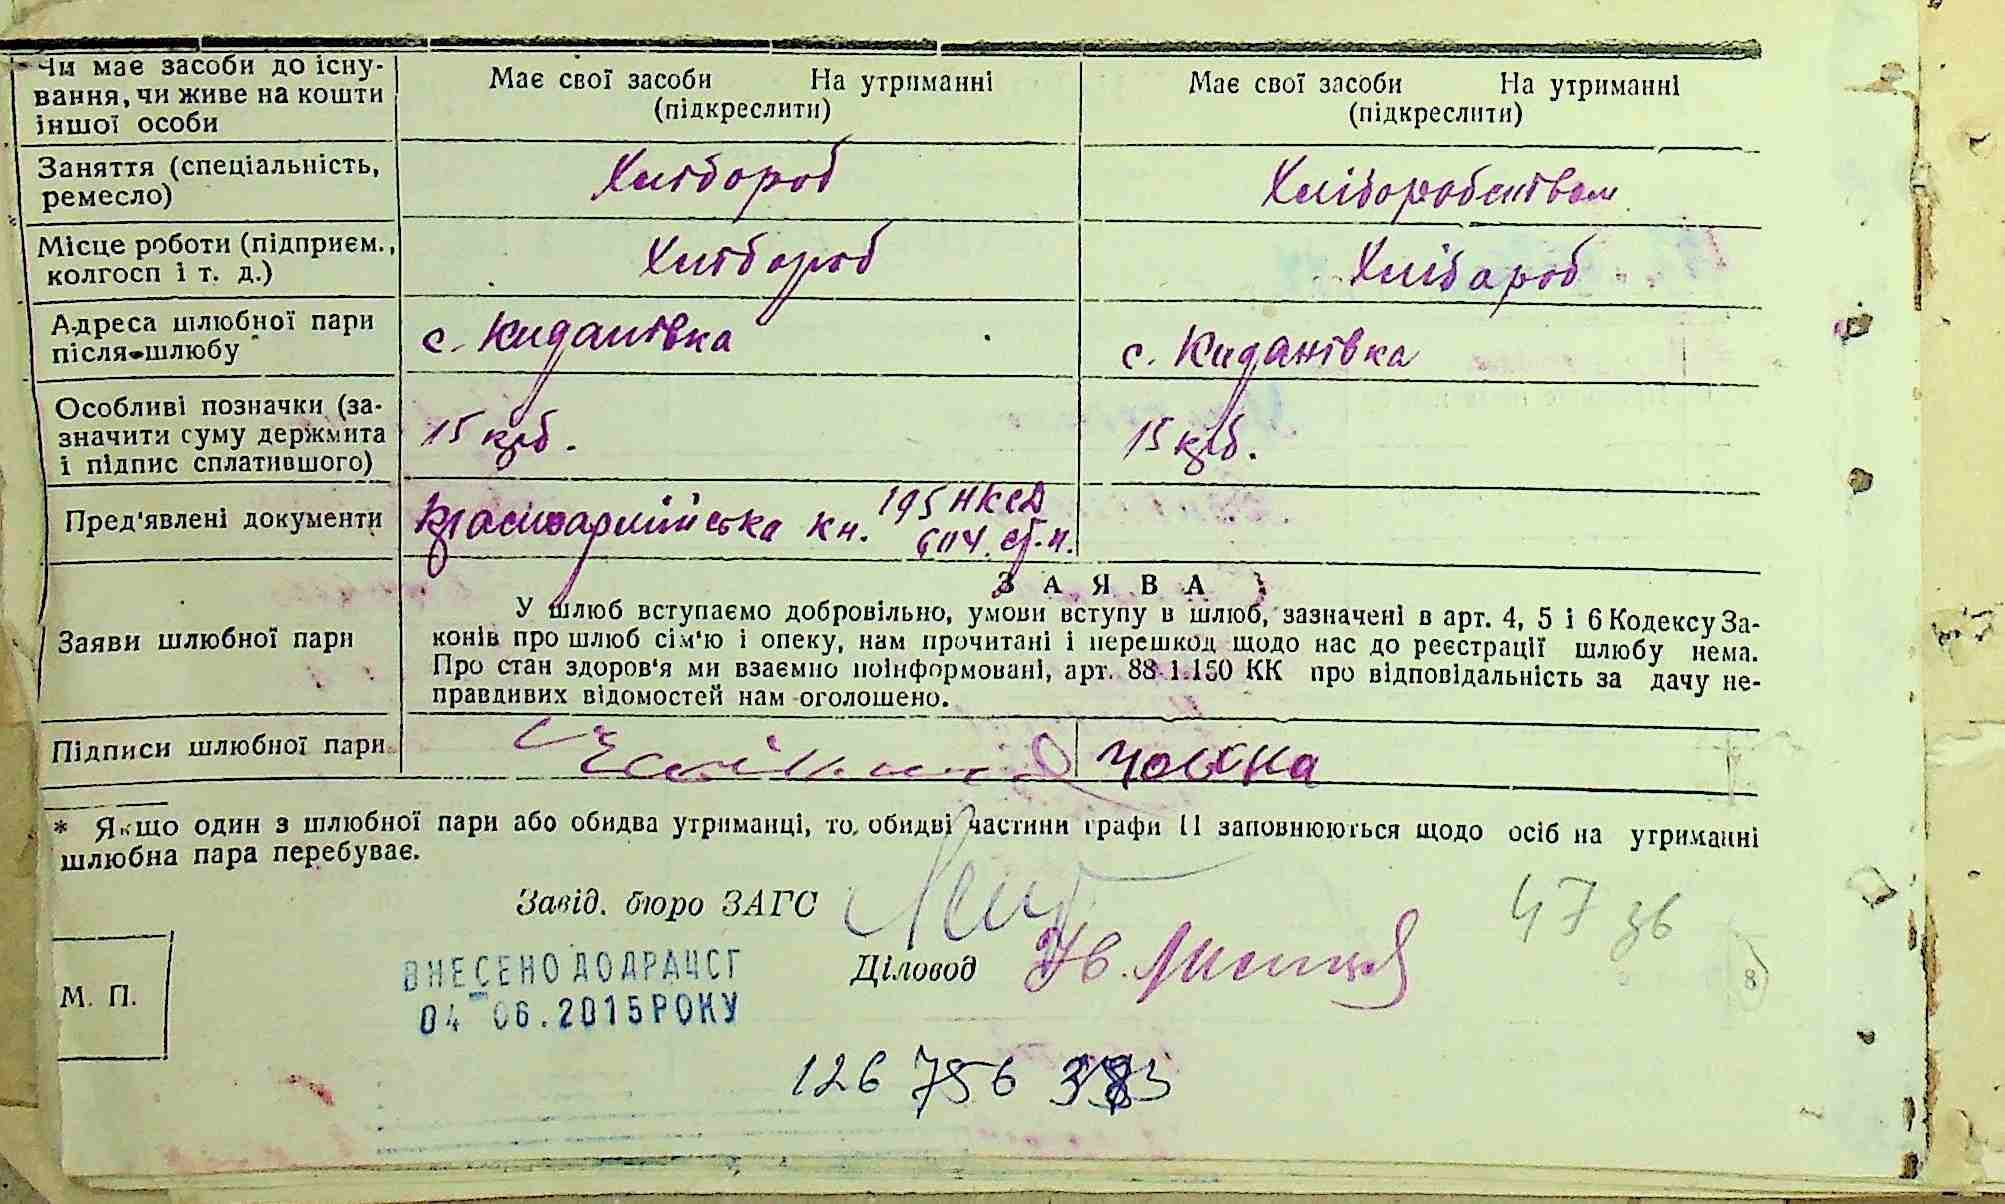 Чи має засоби до існу-
вання, чи живе на кошти
іншої особи
Має свої засоби На утриманні
(підкреслити)
Має свої засоби На утриманні
(підкреслити)
Заняття (спеціальність,
ремесло)
Хлібороб
Хліборобством
Місце роботи (підприєм.,
колгосп і т. д.)
Хлібороб
Хлібороб
Адреса шлюбної пари
після шлюбу
с. Киданівка
с. Киданівка
Особливі позначки (за-
значити суму держмита
і підпис сплатившого)
15 крб.
15 крб.
Пред'явлені документи
Красноармійська кн. 195 НКСД
Заяви шлюбної пари
ЗАЯВА
У шлюб вступаємо добровільно, умови вступу в шлюб, зазначені в арт. 4, 5 і 6 Кодексу За-
конів про шлюб сім'ю і опеку, нам прочитані і перешкод щодо нас до реєстрації шлюбу нема.
Про стан здоров'я ми взаємно поінформовані, арт. 88-1.150 КК про відповідальність за дачу не-
правдивих відомостей нам оголошено.
Підписи шлюбної пари
* Якщо один з шлюбної пари або обидва утриманці, то, обидві частини графи 11 заповнюються щодо осіб на утриманні
шлюбна пара перебуває.
Завід. бюро ЗАГС
47 зв
ВНЕСЕНО ДО ДРАЦСГ
04 06.2015 РОКУ
Діловод Ів. Лисиця
8
М. П.
126 756